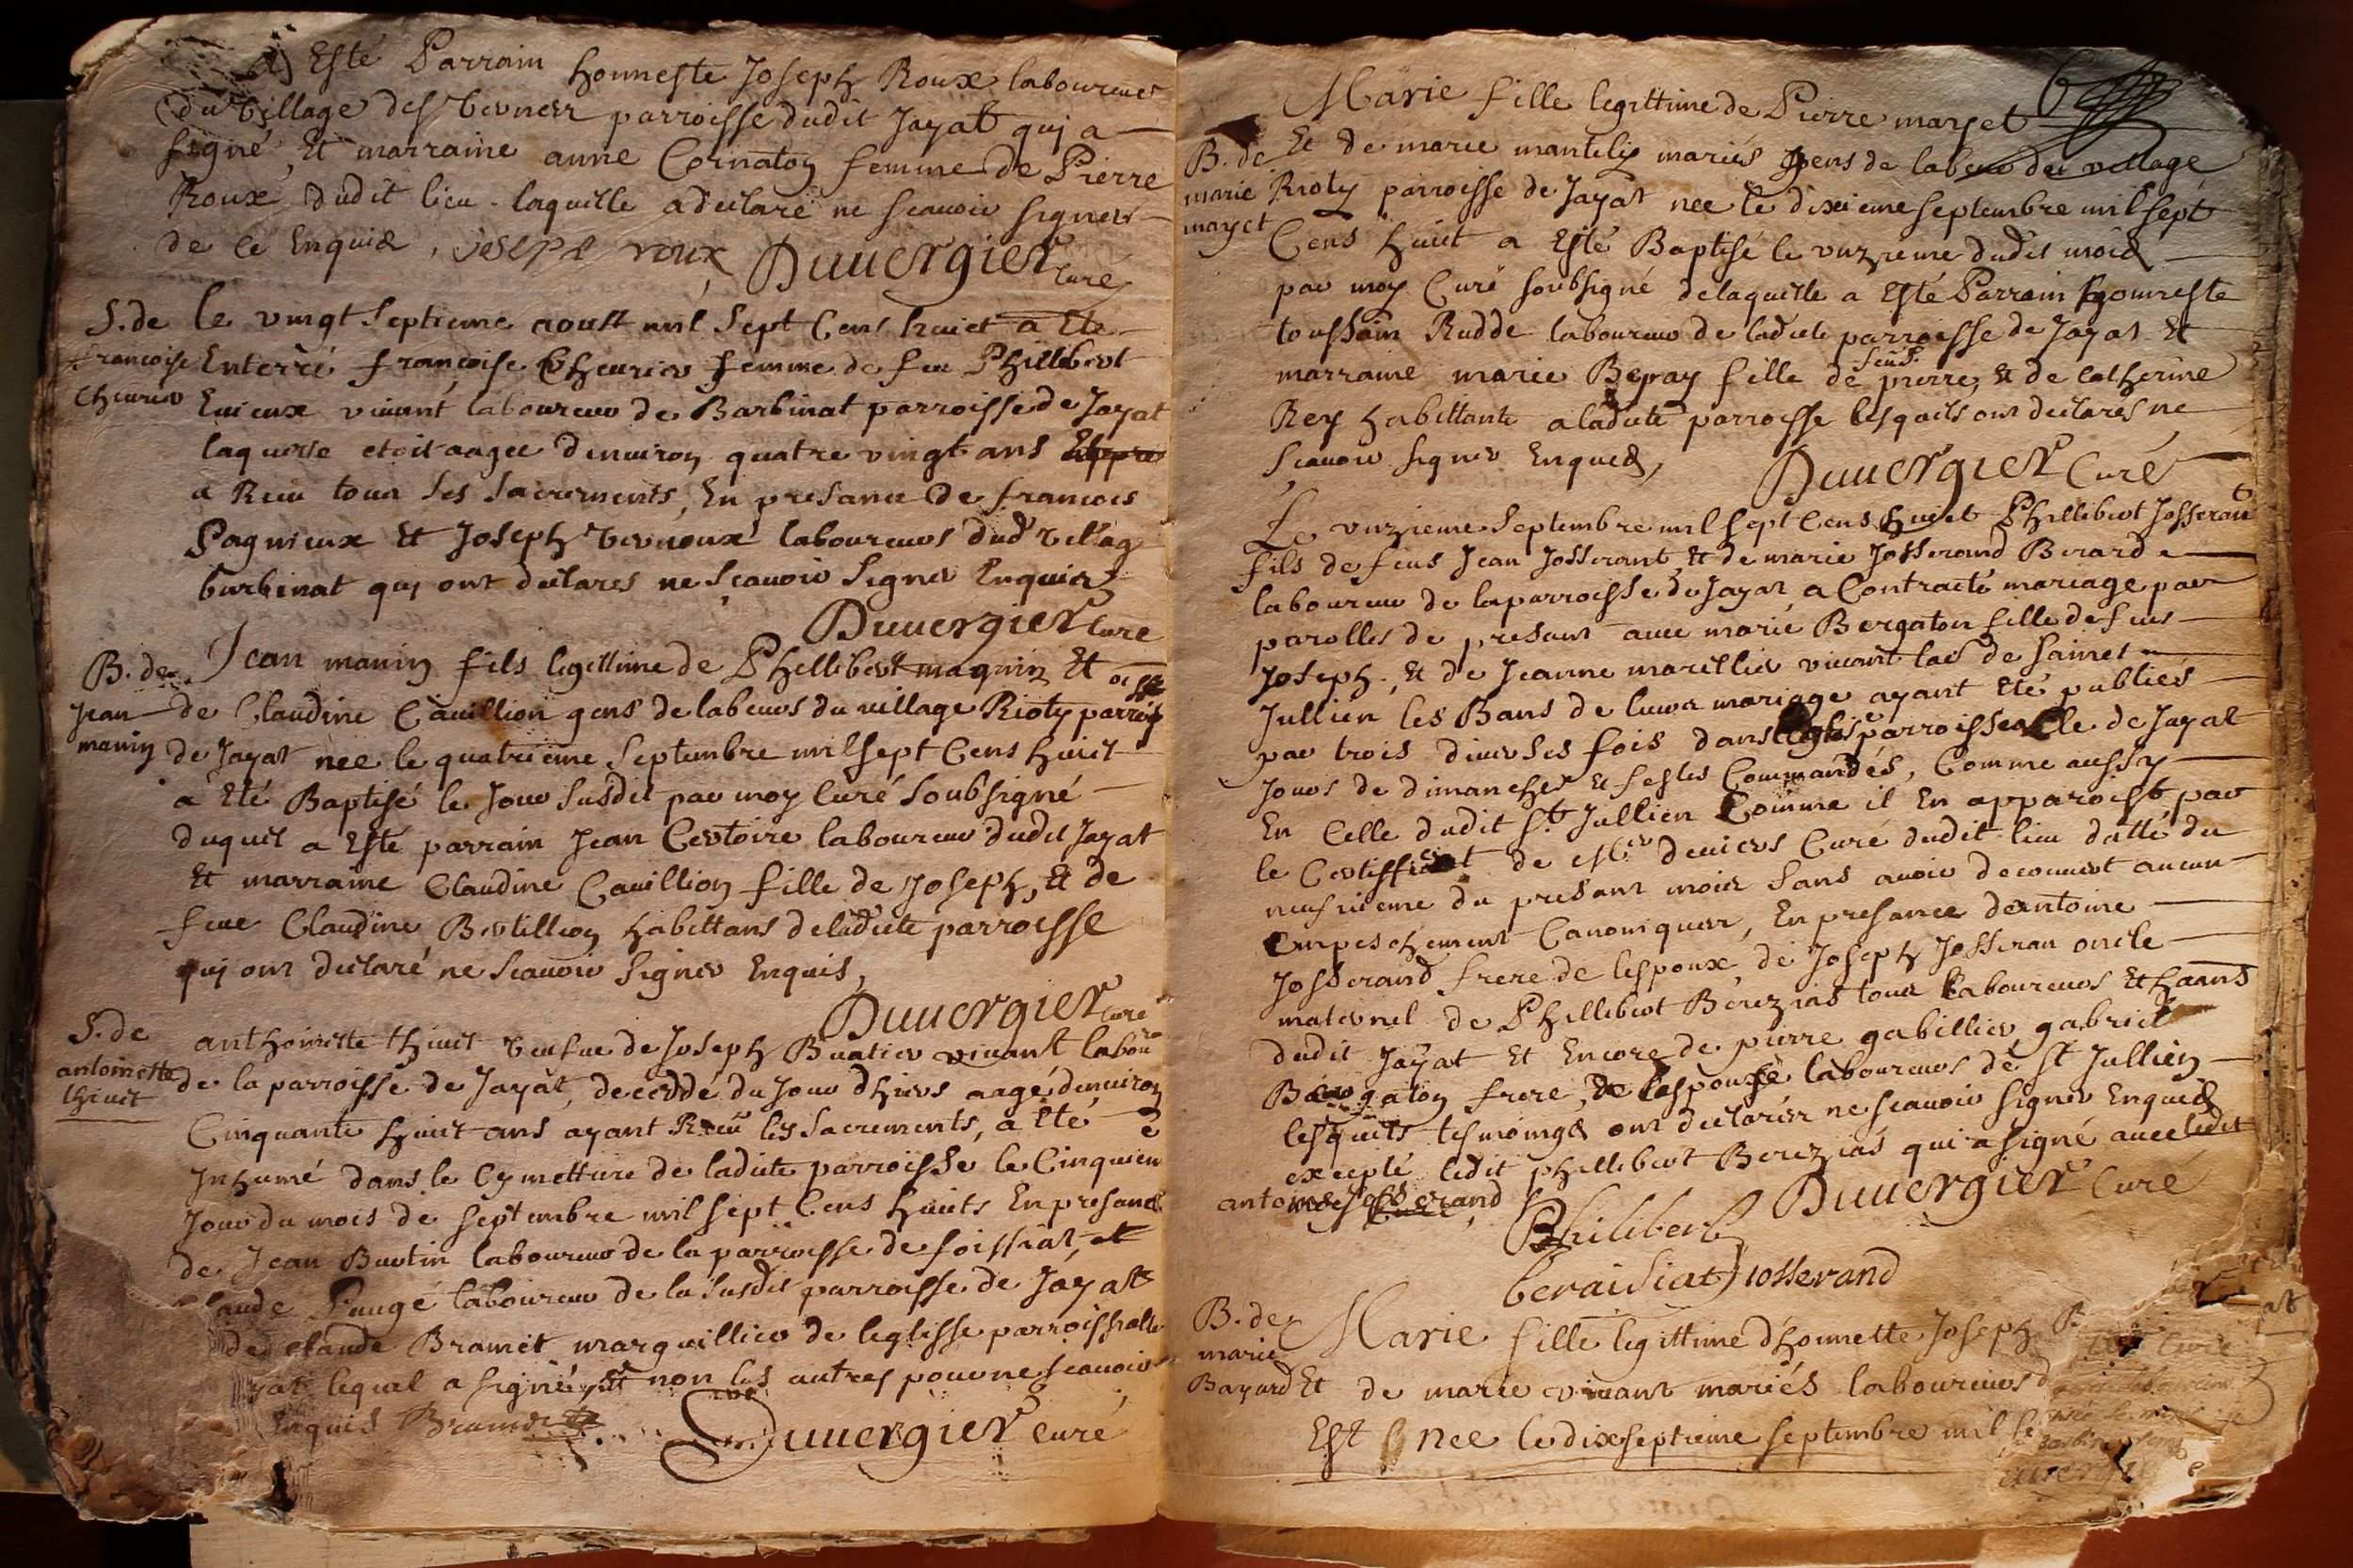 a Esté Parrain honneste Joseph Roux laboureur
du village des verneir parroisse dudit Jayat quj a
signé, Et marraine anne Cornaton femme de Pierre
Roux dudit lieu laquelle a declaré ne scauoir signer
de ce Enquis, ioseph roux Duuergier Curé
S. de
francoise
Cheurier
Le vingt Septieme aoust mil Sept Cens huict a Ete
Enterré francoise Cheurier femme de feu Phillibert
viuant laboureur de Barbinat parroisse de Jayat
laquelle etoit aagee denuiron quatre vingt ans
a Receu tous Ses Sacrements, En presance de francois
Pagnieux Et Joseph laboureurs dud village
burbinat quj ont declarés ne Scauoir Signer Enquis
Duuergier Curé
B. de
Jean
manin
Jean manin fils legittime de Phellibert magnin Et
de Claudine Cauillion gens de labeurs du uillage Rioty parroisse
de Jayat nee le quatrieme Septembre mil sept Cens huict
a Eté Baptisé le Jour Susdit par moy Curé Soubsigné
duquel a Esté parrain Jean Certoire laboureur dudit Jayat
Et marraine Claudine Cauillion fille de Joseph, Et de
feue Claudine Bertillion habittans de ladicte parroisse
quj ont declaré ne Scauoir Signer Enquis,
Duuergier Curé
S. de
antoinette
thiuit
anthoinette thiuit veufue de Joseph Buatier viuant labour
de la parroisse de Jayat, decedde du Jour dhiers aagé denuiron
Cinquante huict ans ayant Receu les Sacrements, a Eté
Inhumé dans le Cymettiere de ladicte parroisse le Cinquiem
Jour du mois de septembre mil sept Cens huicts En presance
de Jean Buotin laboureur de la parroisse de foissiat, et
aude Paugé laboureur de la Susdit parroisse de Jayat
de Claude Bramet marguillier de leglisse parroissialle
yat lequel a signé, et non les autres pour ne scauoir
Enquis Bramet Duuergier Curé
B. de
marie
mayet
Marie fille legittime de Pierre mayet
Et de marie mantelin mariés gens de labeur du village
Rioty parroisse de Jayat nee le dixieme septembre mil sept
Cens huict a Esté Baptisé le vnzieme dudit mois
par moy Curé soubsigné de laquelle a Esté Parrain honneste
toussain Rudde laboureur de ladicte parroisse de Jayat Et
marraine marie Beray fille de feus pierre, Et de Catherine
Rey habittante a ladicte parroisse lesquels ont declarés ne
Scauoir signer Enquis,
Duuergier Curé
Le vnzieme Septembre mil sept Cens huict Phillibert Josserant
fils de feus Jean Josserant Et de marie Josserand Berard
laboureur de la parroisse de Jayat a Contracté mariage par
parolles de presant auec marie Bergaton fille de feus
Joseph, Et de Jeanne marillier viuant lab de Sainct
Jullien les Bans de leurs mariage ayant Eté publiés
par trois diuerses fois dans leglise parroissialle de Jayat
Jours de dimanches Et festes Commandés, Comme aussy
En Celle dudit St Jullien Comme il En apparoist par
le Certifficat de Mr deuiers Curé dudit lieu datté du
neufuieme du presant mois Sans auoir decouuert aucun
empeschement Canoniques, En presance dantoine
Josserand frere de lespoux, de Joseph Josseran oncle
maternel de Phillibert Berezias tous laboureurs Et
dudit Jayat Et Encore de pierre gabillier, gabriel
Bergaton frere de lespouse laboureurs de St Jullien
lesquels tesmoings ont declarés ne scauoir signer Enquis
excepté ledit phillibert Berezias qui a signé auec ledit
antoine Josserand Duuergier Curé
Philibert
beraisiat Josserand
B. de
marie
Bayard
Marie fille legittime dhonnette Joseph
Et de marie viuant mariés laboureurs
Est nee le dixseptieme septembre mil